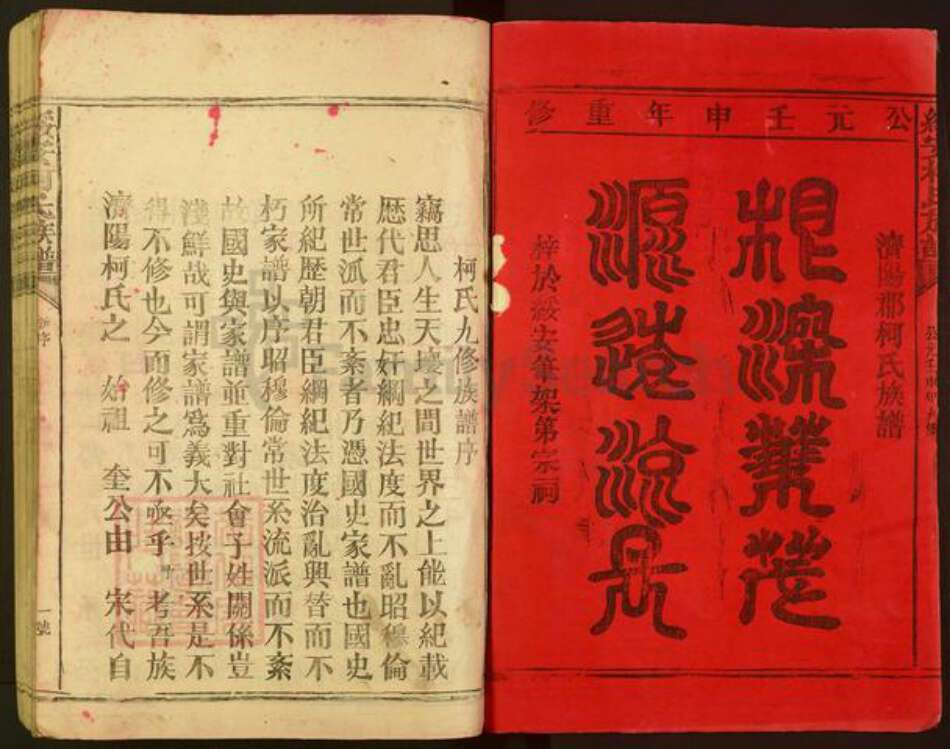 公元壬申年重修
濟陽郡柯氏族譜
根深葉茂
源遠流長
梓於綏安筆架第宗祠
柯氏九修族譜序
竊思人生天壤之間世界之上能以紀載
歷代君臣忠奸綱紀法度而不亂昭穆倫
常世派而不紊者乃憑國史家譜也國史
所紀歷朝君臣綱紀法度治亂興替而不
朽家譜以序昭穆倫常世系流派而不紊
故國史與家譜並重對社會子姓關係豈
淺鮮哉可謂家譜爲義大矣按世系是不
得不修也今而修之可不亟乎 考吾族
濟陽柯氏之 始祖 奎公由 宋代自
柯氏族譜
序
一號